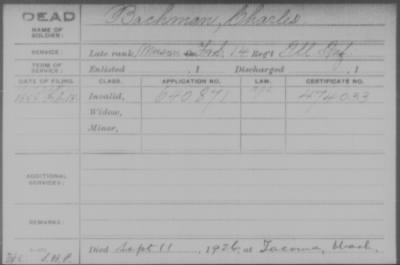 DEAD
Bachman, Charles
NAME OF
SOLDIER:
SERVICE:
Late rank, Musician Ind. 14 Reg't Ill Inf.
TERM OF
SERVICE:
Enlisted , 1 Discharged , 1
DATE OF FILING. CLASS. APPLICATION NO. LAW. CERTIFICATE NO.
Invalid, 640871 474033
Widow,
Minor,
ADDITIONAL
SERVICES:
REMARKS:
Died Sept 11, 1926, at Tacoma, Wash.